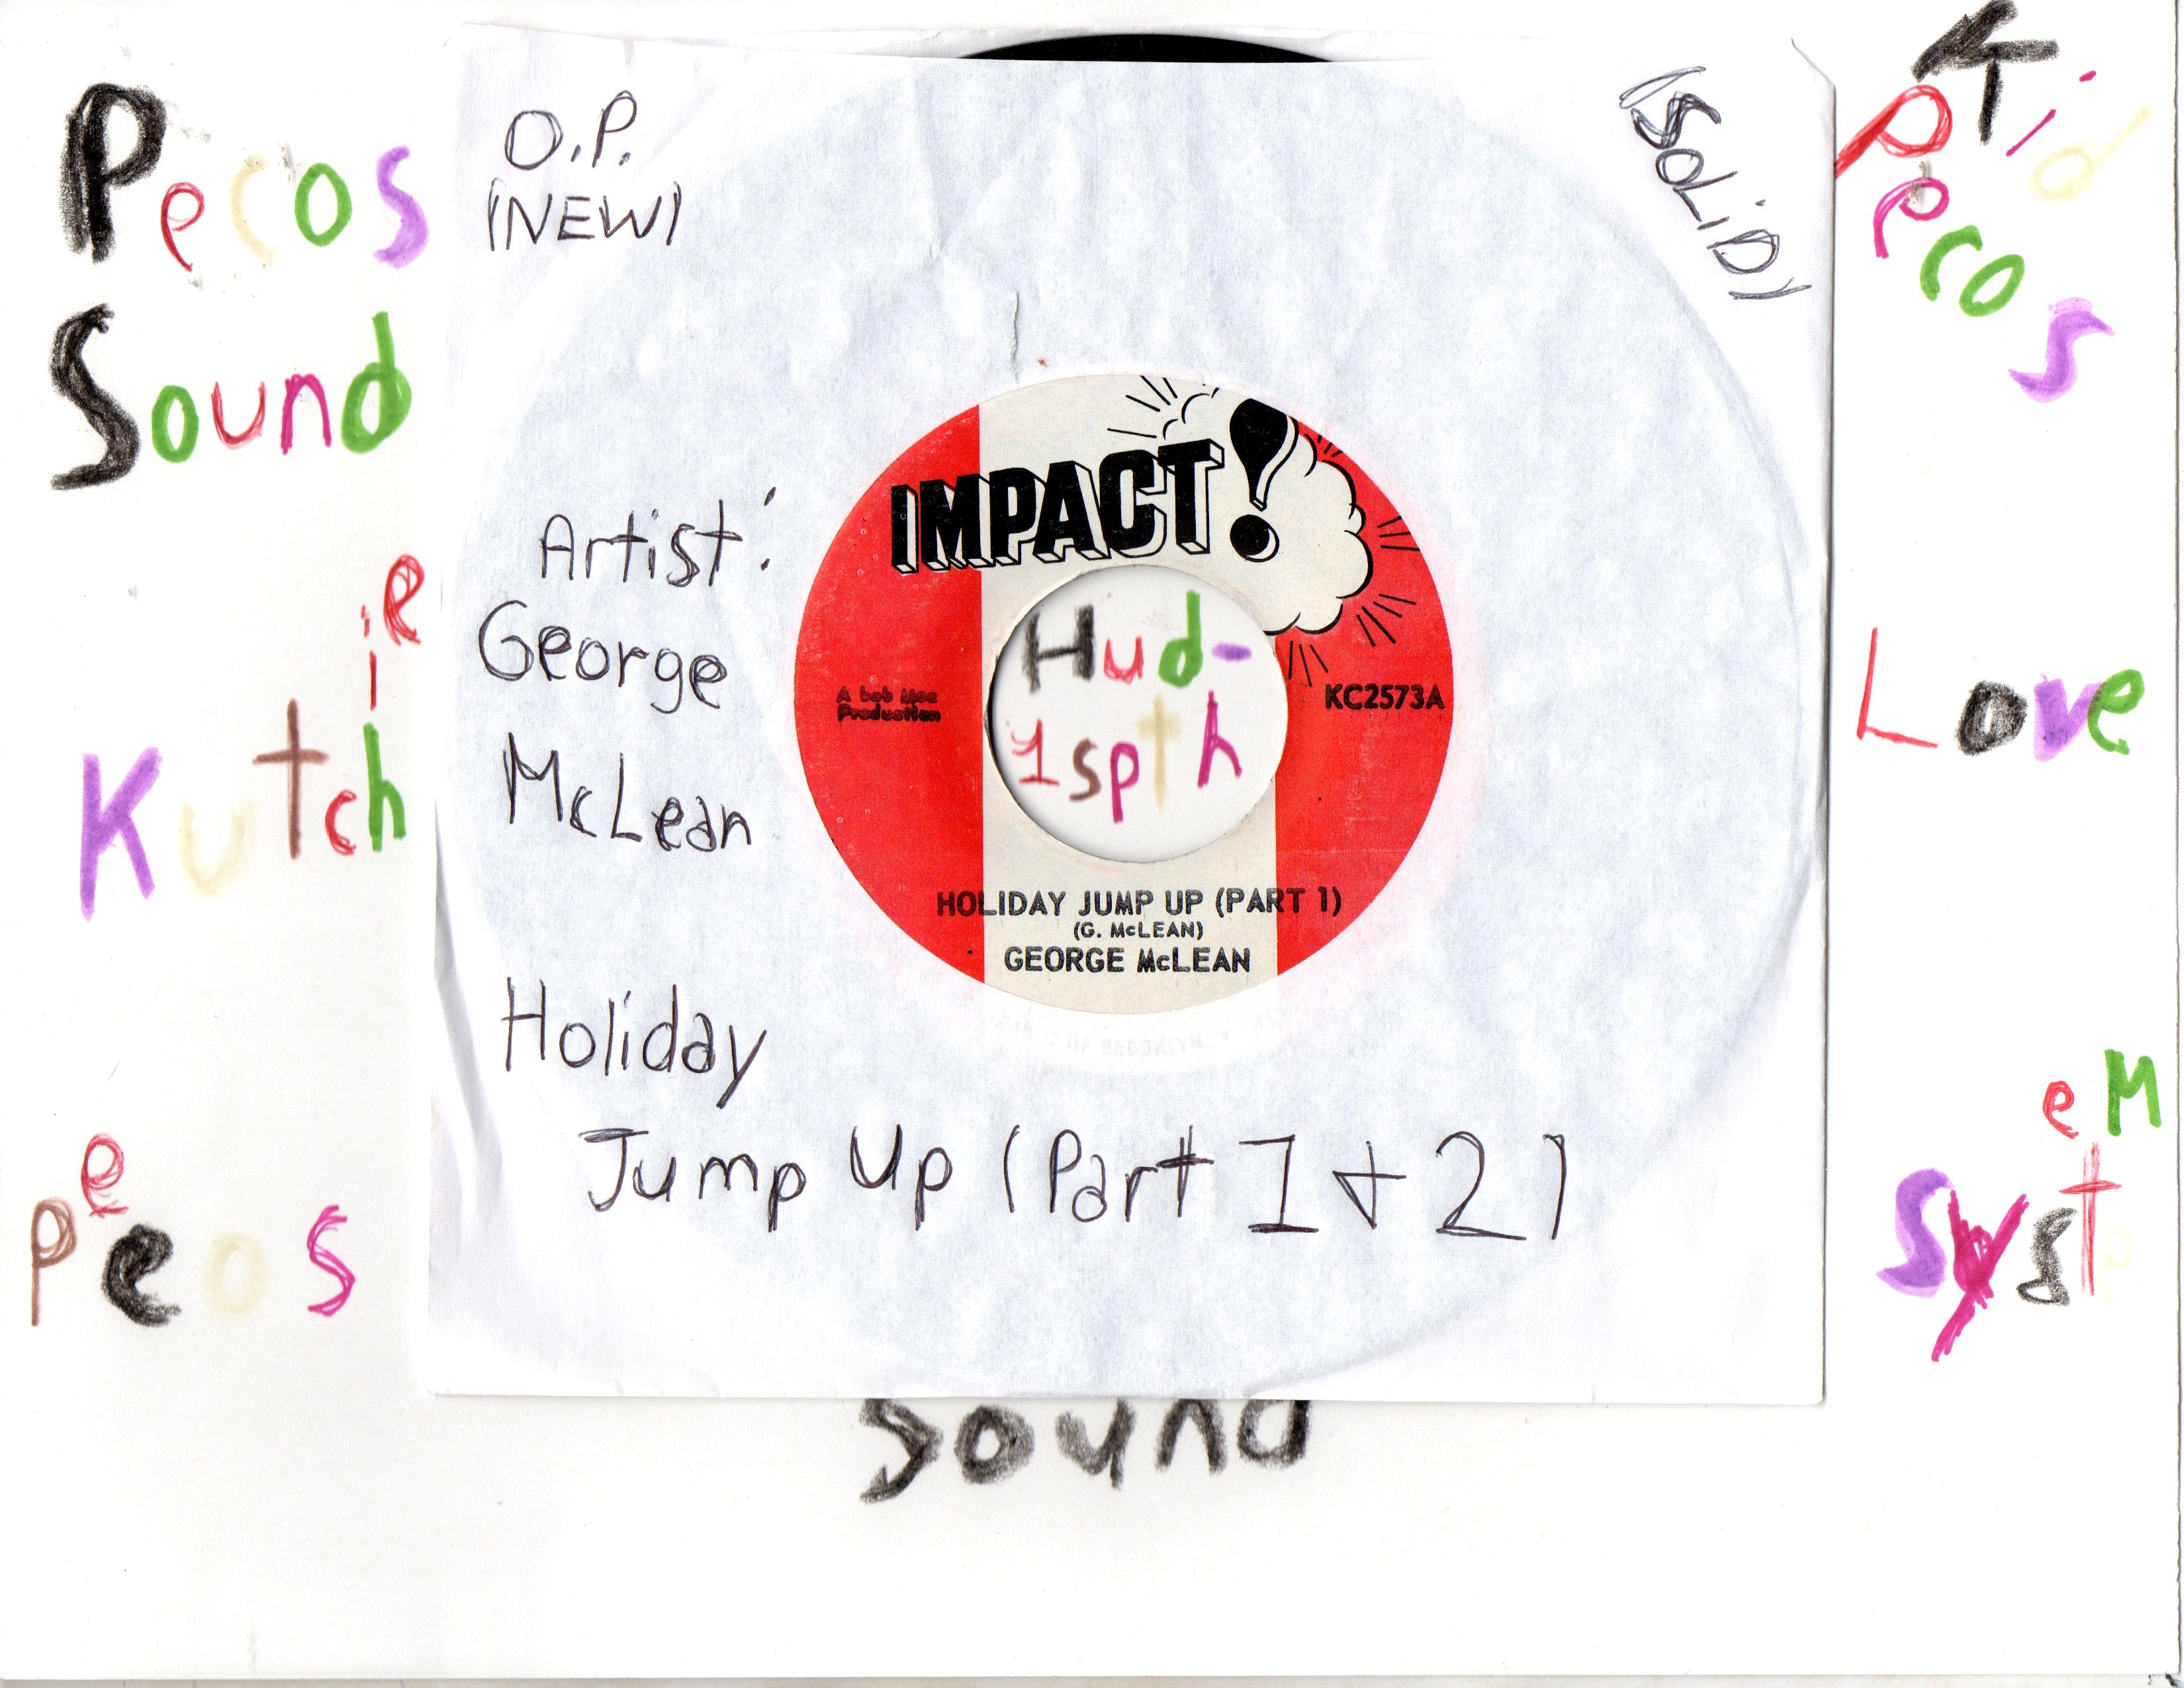 Pecos
Sound
Kutchie
Peeos
O.P.
(NEW)
(SOLiD)
Kid
Pecos
Artist:
George
McLean
IMPACT!
A bob Mac
Production
KC2573A
Hud-
1spth
HOLIDAY JUMP UP (PART 1)
(G. McLEAN)
GEORGE McLEAN
Holiday
Jump Up (Part 1 + 2)
Love
SysteM
Sound